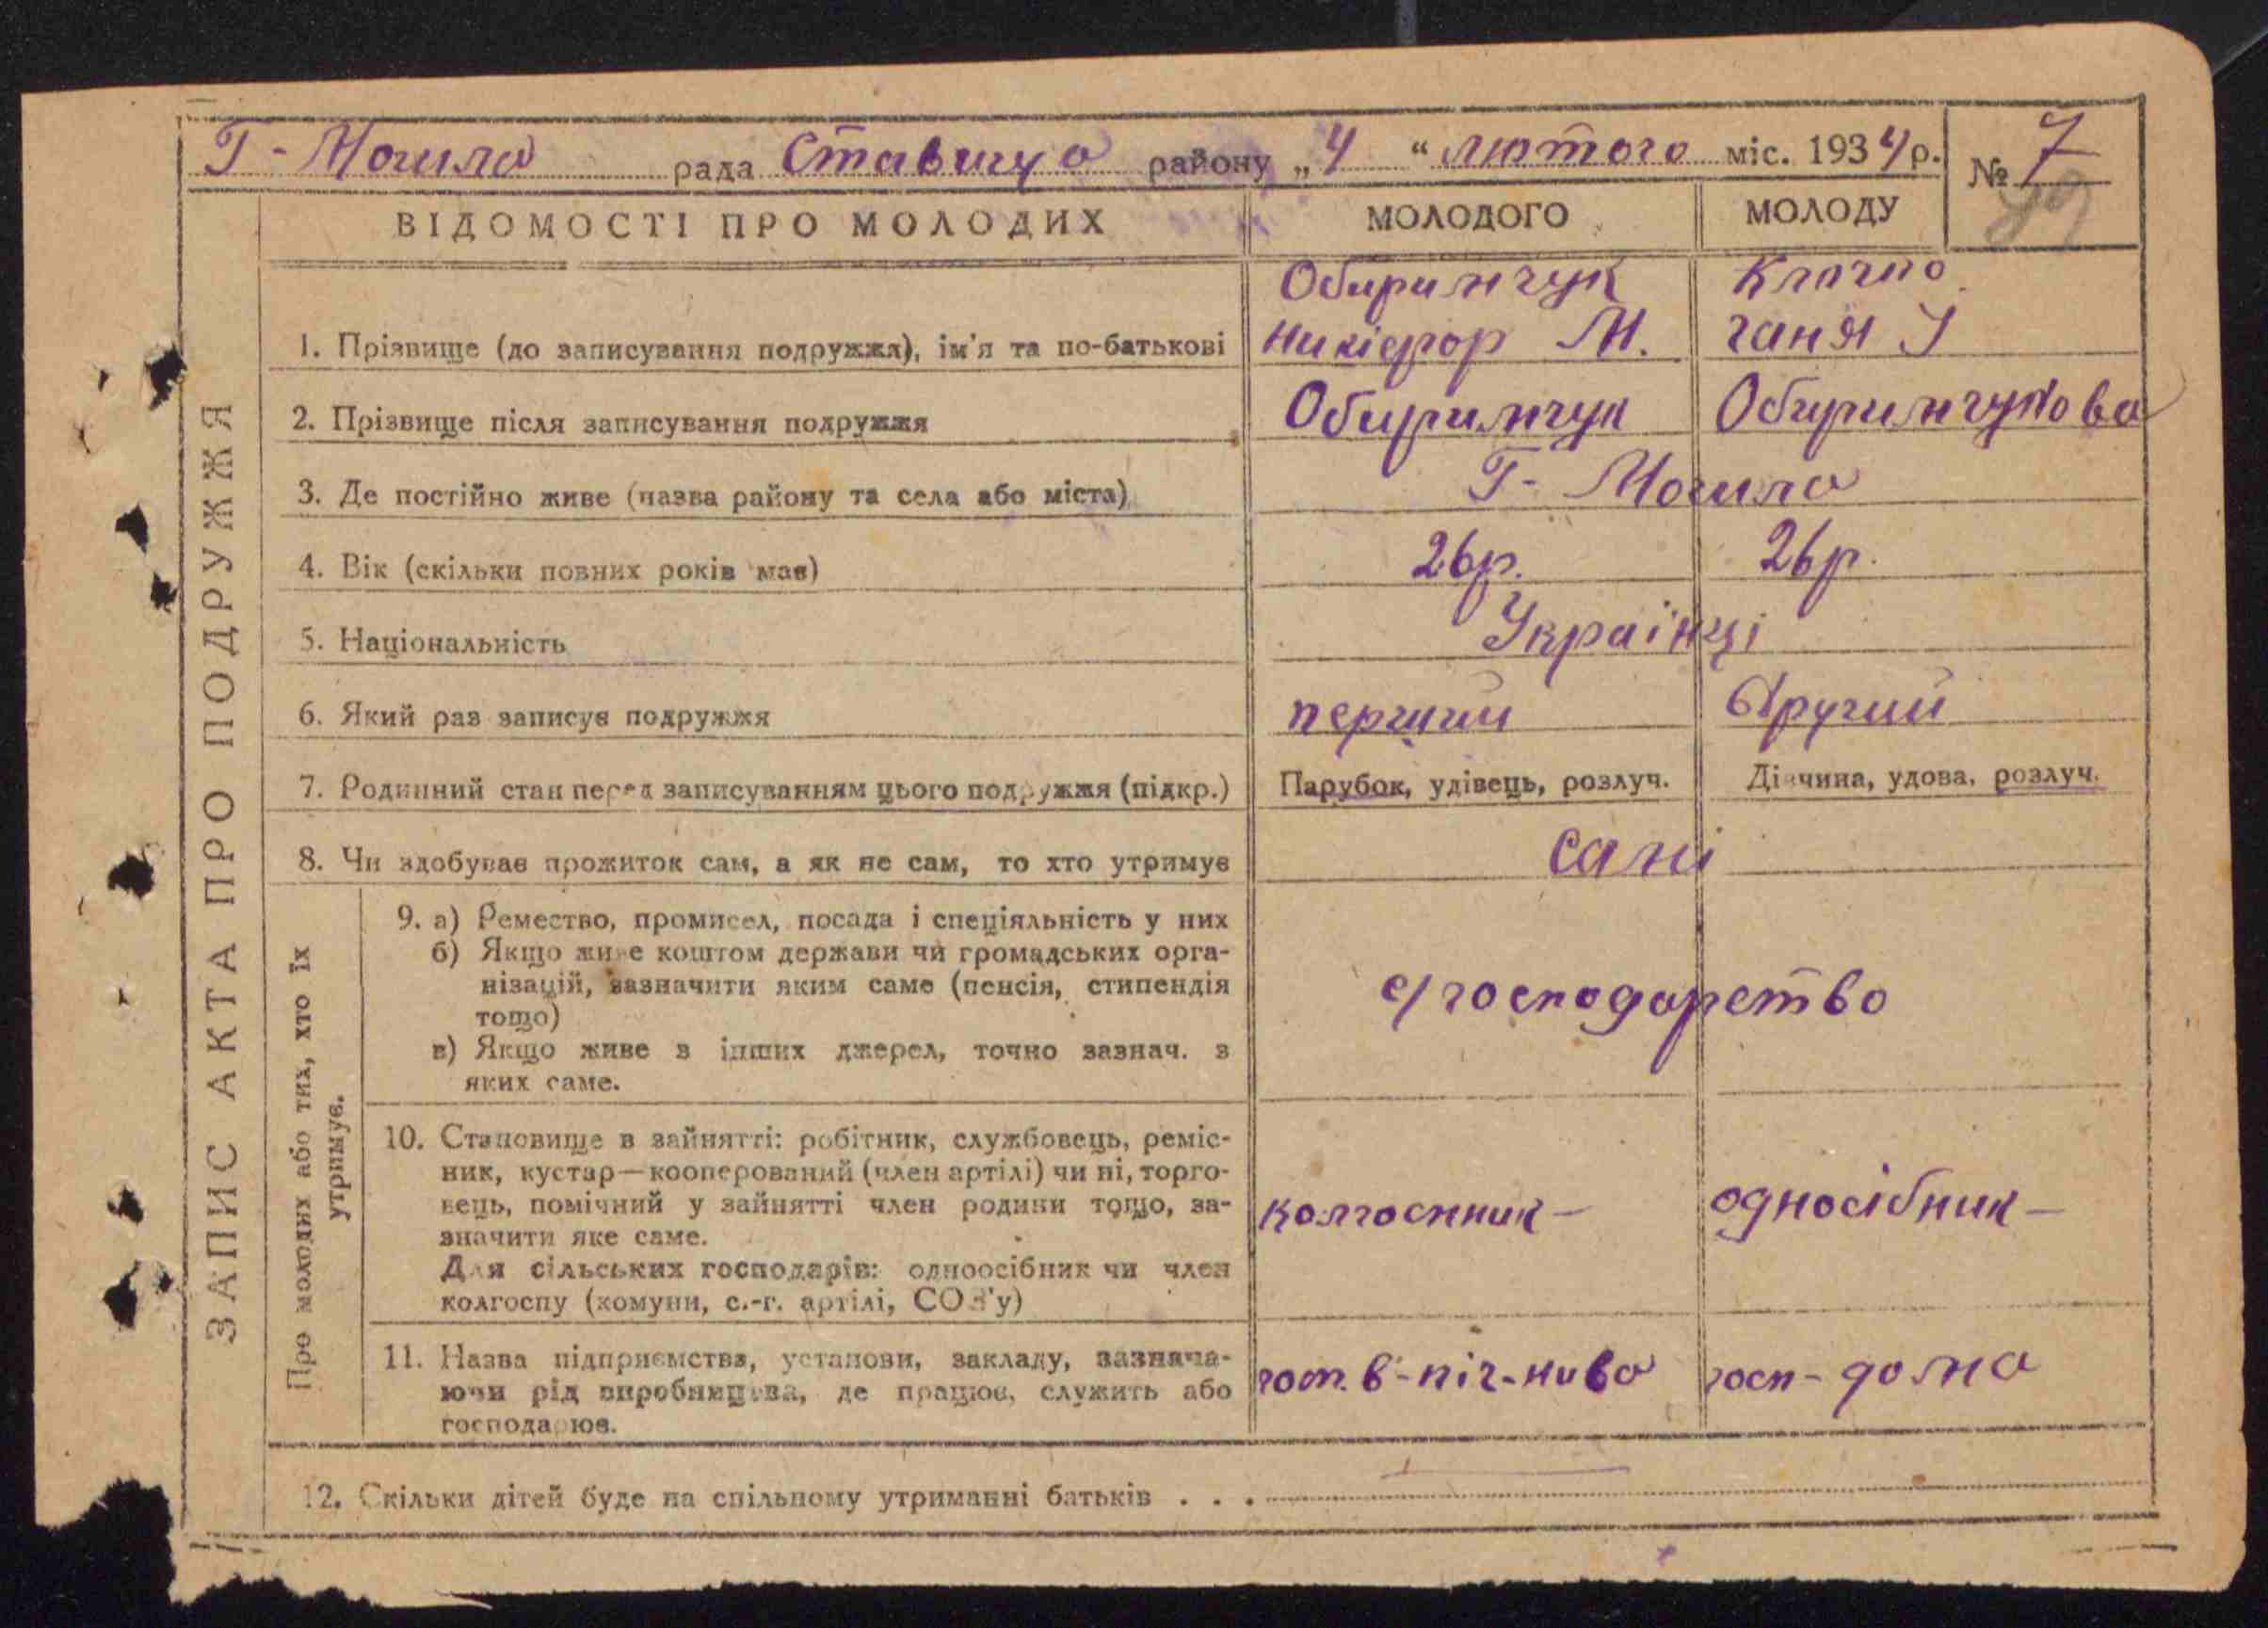 Г-Могила рада Ставища району „4“ лютого міс. 1934 р.
№ 7
ВІДОМОСТІ ПРО МОЛОДИХ МОЛОДОГО МОЛОДУ
ЗАПИС АКТА ПРО ПОДРУЖЖЯ
1. Прізвище (до записування подружжя), ім'я та по-батькові
Никіфор М. Ганя
2. Прізвище після записування подружжя
3. Де постійно живе (назва району та села або міста) Г-Могила
4. Вік (скільки повних років має) 26р. 26р.
5. Національність Українці
6. Який раз записує подружжя перший Другий
7. Родинний стан перед записуванням цього подружжя (підкр.) Парубок, удівець, розлуч. Дівчина, удова, розлуч.
8. Чи здобуває прожиток сам, а як не сам, то хто утримує самі
Про молодих або тих, хто їх
утримує.
9. а) Ремество, промисел, посада і спеціяльність у них
б) Якщо живе коштом держави чи громадських орга-
нізацій, зазначити яким саме (пенсія, стипендія
тощо)
в) Якщо живе з інших джерел, точно зазнач. з
яких саме.
с/господарство
10. Становище в зайнятті: робітник, службовець, реміс-
ник, кустар—кооперований (член артілі) чи ні, торго-
вець, помічний у зайнятті член родини тощо, за-
значити яке саме.
Для сільських господарів: одноосібник чи член
колгоспу (комуни, с.-г. артілі, СОЗ'у)
колгоспник— односібник—
11. Назва підприємства, установи, закладу, зазнача-
ючи рід виробництва, де працює, служить або
господарює.
госп-дома
12. Скільки дітей буде на спільному утриманні батьків . . .